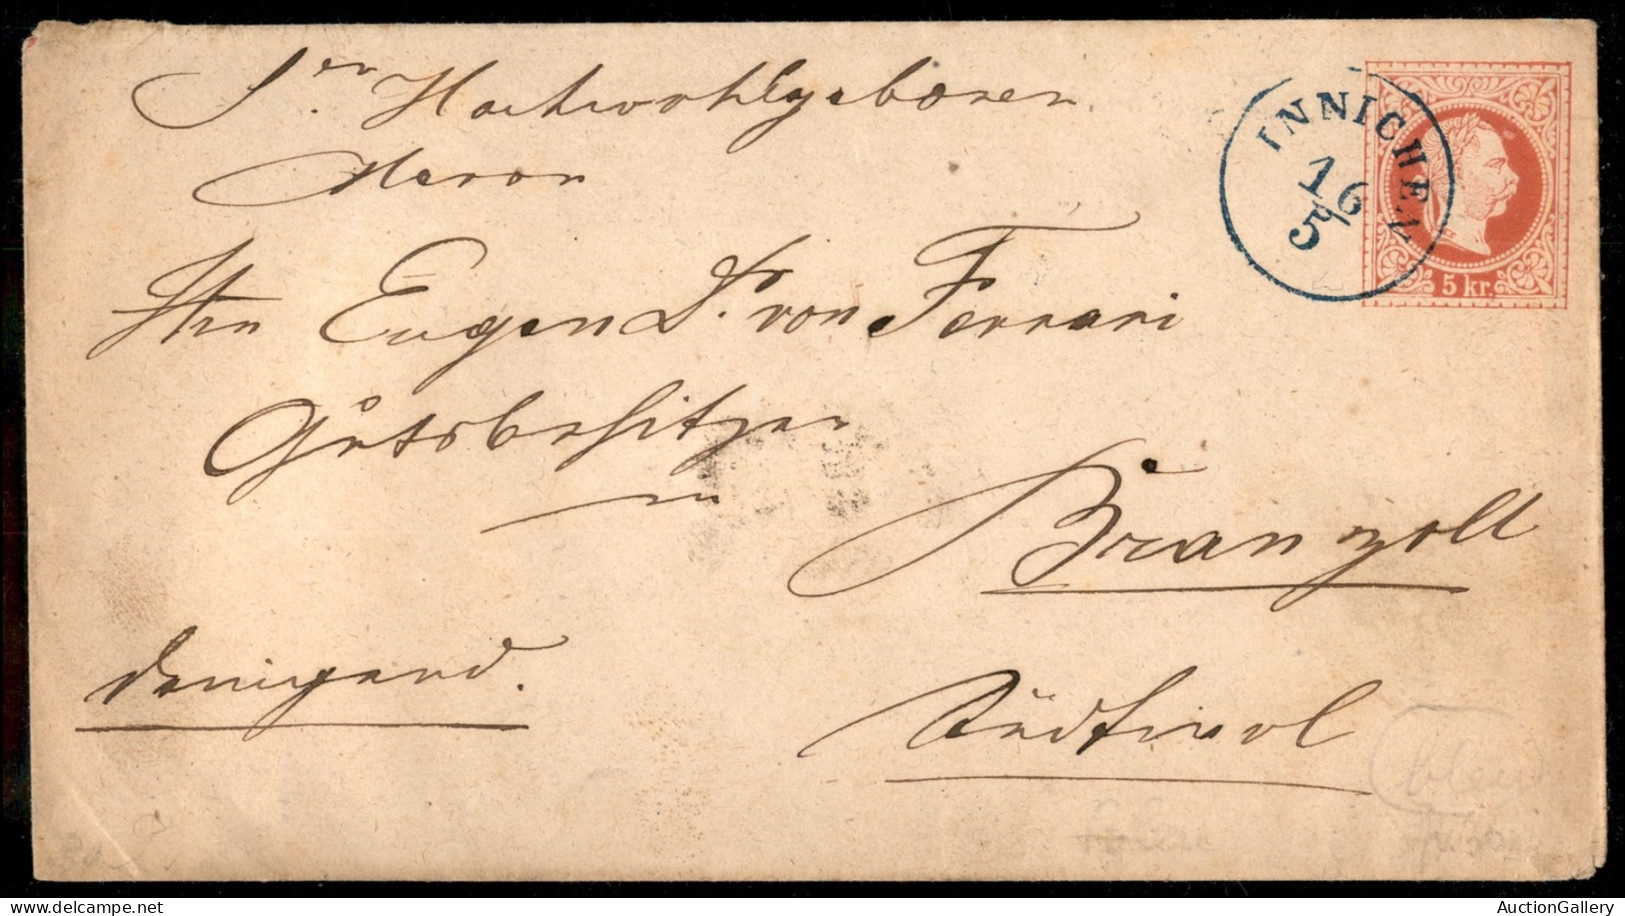 Sr. Hochwohlgeboren
Herrn
Hrn Eugen Dr. von Ferrari
Gutsbesitzer
in
Branzoll
Südtirol
dringend.
INNICHEN
16
5
5 kr.
bleu
AuctionGallery